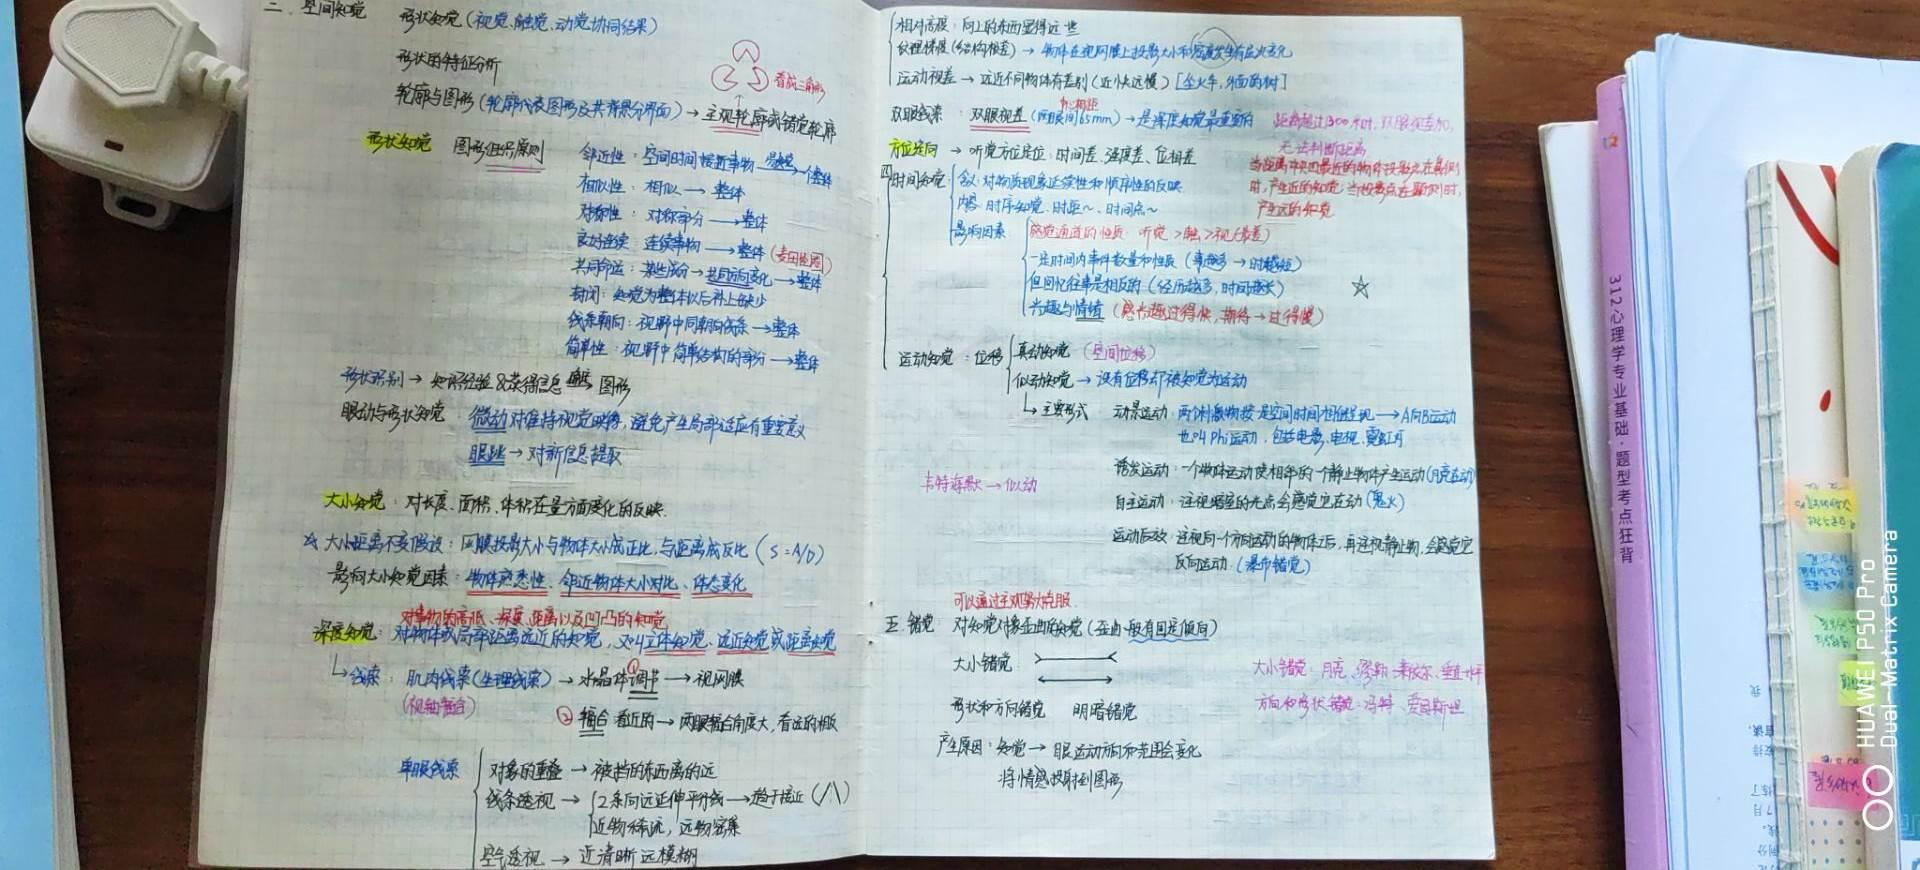 二、空间知觉 形状知觉(视觉、触觉、动觉协同结果)
形状的特征分析
看成三角形
轮廓与图形(轮廓代表图形及其背景分界面)→主观轮廓或错觉轮廓
形状知觉 图形组织原则
邻近性:空间时间接近事物→整体
相似性:相似→整体
对称性:对称部分→整体
良好连续:连续事物→整体
共同命运:某些成分→共同方向变化→整体
封闭:知觉为整体以后补上缺少
线条朝向:视野中同朝向线条→整体
简单性:视野中简单结构的部分→整体
形状识别→知识经验&获得信息 图形
眼动与形状知觉:微动对维持视觉映像,避免产生局部适应有重要意义
眼跳→对新信息提取
大小知觉:对长度、面积、体积在量方面变化的反映.
☆大小距离不变假设:网膜投影大小与物体大小成正比,与距离成反比(s=A/D)
影响大小知觉因素:物体熟悉性、邻近物体大小对比、体态变化
对事物的高低、深度、距离以及凹凸的知觉
深度知觉:对物体或局部距离远近的知觉,又叫立体知觉、远近知觉或距离知觉
线索:肌肉线索(生理线索)→①水晶体调节→视网膜
(视轴辐合)
②辐合 看近的→两眼辐合角度大,看远的相反
单眼线索
对象的重叠→被挡的东西离的远
线条透视→2条向远延伸平行线→趋于接近(/\)
近物稀疏,远物密集
空气透视→近清晰远模糊
相对高度:向上的东西显得远些
纹理梯度(结构极差)→物体在视网膜上投影大小和密度发生有层次变化
运动视差→远近不同物体有差别(近快远慢)[坐火车,外面的树]
双眼线索:双眼视差(两眼间65mm)→是深度知觉最重要的
距离超过1300米时,双眼视差加,
无法判断距离
方位定向→听觉方位定位:时间差、强度差、位相差
四 时间知觉:
含义:对物质现象延续性和顺序性的反映
内容:时序知觉、时距~、时间点~
影响因素
感觉通道的性质:听觉>触>视(最差)
一定时间内事件数量和性质(事越多→时越短)
但回忆往事是相反的(经历越多,时间越长)
兴趣与情绪(感兴趣过得快,期待→过得慢)
运动知觉:位移
真动知觉(空间位移)
似动知觉→没有位移却被知觉为运动
主要形式
动景运动:两个刺激物按一定空间时间相继呈现→A向B运动
也叫Phi运动,包括电影、电视、霓虹灯
韦特海默→似动
诱发运动:一个物体运动使相邻的一个静止物体产生运动(月亮在动)
自主运动:注视暗室的光点会感觉它在动(鬼火)
运动后效:注视向一个方向运动的物体之后,再注视静止物,会感觉它
反向运动.(瀑布错觉)
可以通过主观努力克服.
五.错觉 对知觉对象歪曲的知觉(歪曲一般有固定倾向)
大小错觉
大小错觉:月亮、缪勒-莱耶尔、垂直水平
形状和方向错觉 明暗错觉
方向和形状错觉:冯特、爱因斯坦
产生原因:知觉→眼运动方向和范围会变化
将情感投射到图形
312心理学专业基础·题型考点狂背
HUAWEI P50 Pro
Dual-Matrix Camera